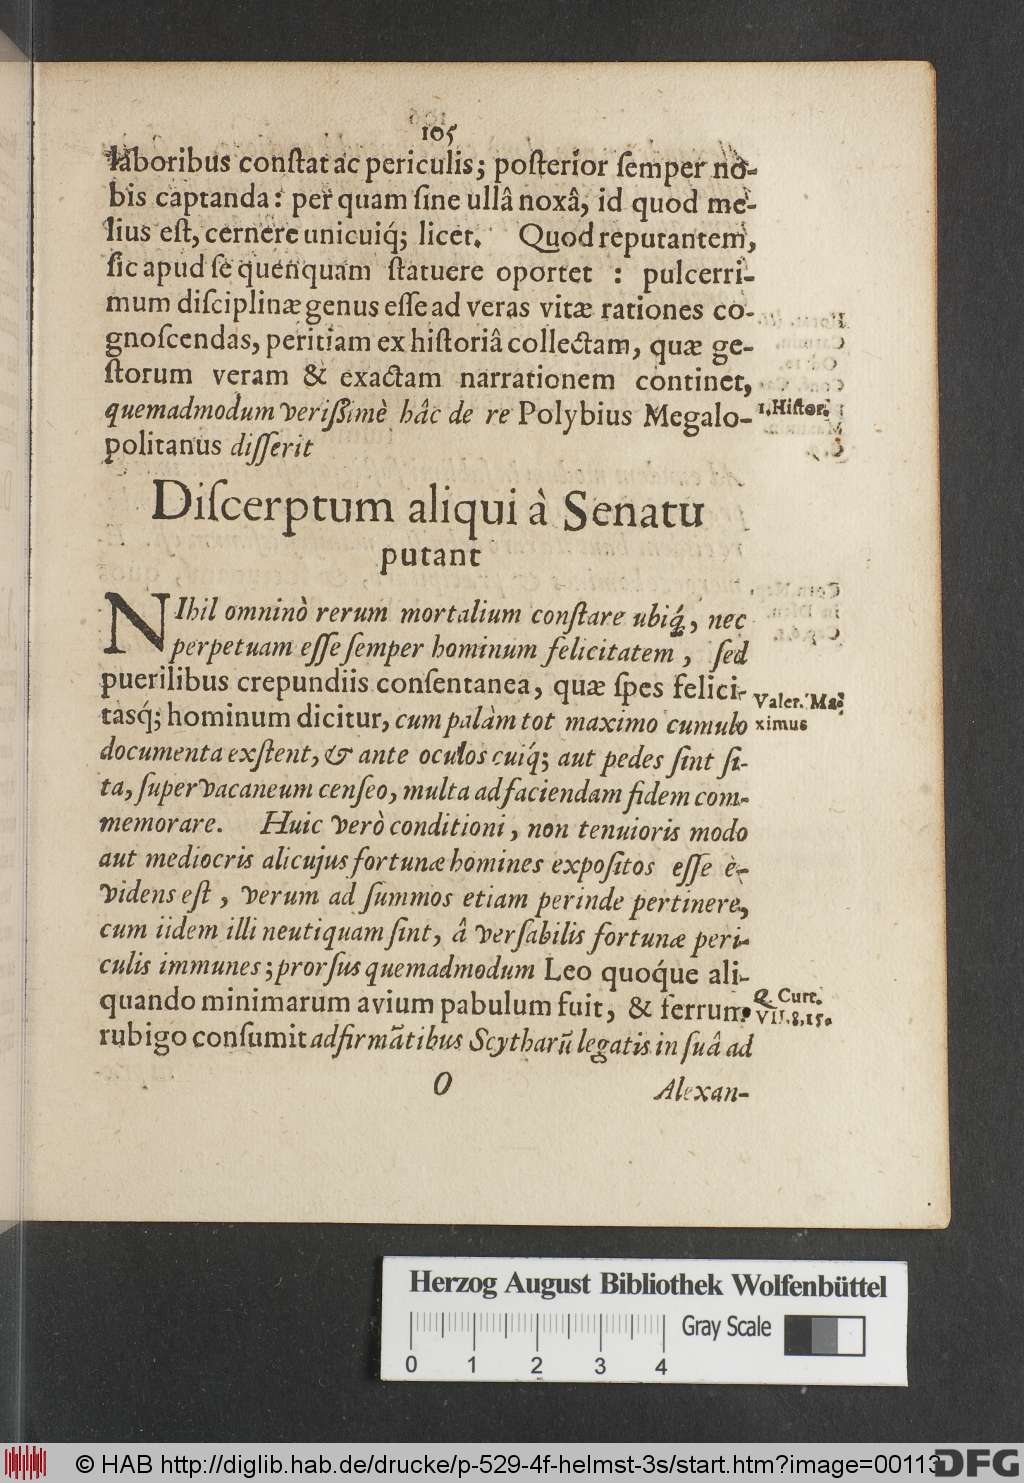 105
laboribus conſtat ac periculis; poſterior ſemper no-
bis captanda: per quam ſine ullâ noxâ, id quod me-
lius eſt, cernere unicuiq́; licet. Quod reputantem,
ſic apud ſe quenquam ſtatuere oportet : pulcerri-
mum diſciplinæ genus eſſe ad veras vitæ rationes co-
gnoſcendas, peritiam ex hiſtoriâ collectam, quæ ge-
ſtorum veram & exactam narrationem continet,
quemadmodum veriſſimè hâc de re Polybius Megalo- 1. Hiſtor.
politanus diſſerit
Diſcerptum aliqui à Senatu
putant
NIhil omninò rerum mortalium conſtare ubiq́, nec
perpetuam eſſe ſemper hominum felicitatem, ſed
puerilibus crepundiis conſentanea, quæ ſpes felici-
tasq́; hominum dicitur, cum palàm tot maximo cumulo
Valer. Ma-
ximus
documenta exſtent, & ante oculos cuiq́; aut pedes ſint ſi-
ta, ſupervacaneum cenſeo, multa ad faciendam fidem com-
memorare. Huic verò conditioni, non tenuioris modo
aut mediocris alicujus fortunæ homines expoſitos eſſe è-
videns eſt, verum ad ſummos etiam perinde pertinere,
cum iidem illi neutiquam ſint, â verſabilis fortunæ peri-
culis immunes; prorſus quemadmodum Leo quoq́ue ali-
quando minimarum avium pabulum fuit, & ferrum
Q. Curt.
VII. 8. 15.
rubigo conſumit adfirmãtibus Scytharũ legatis in ſuâ ad
O Alexan-
Herzog August Bibliothek Wolfenbüttel
Gray Scale
0 1 2 3 4
© HAB http://diglib.hab.de/drucke/p-529-4f-helmst-3s/start.htm?image=00113
DFG